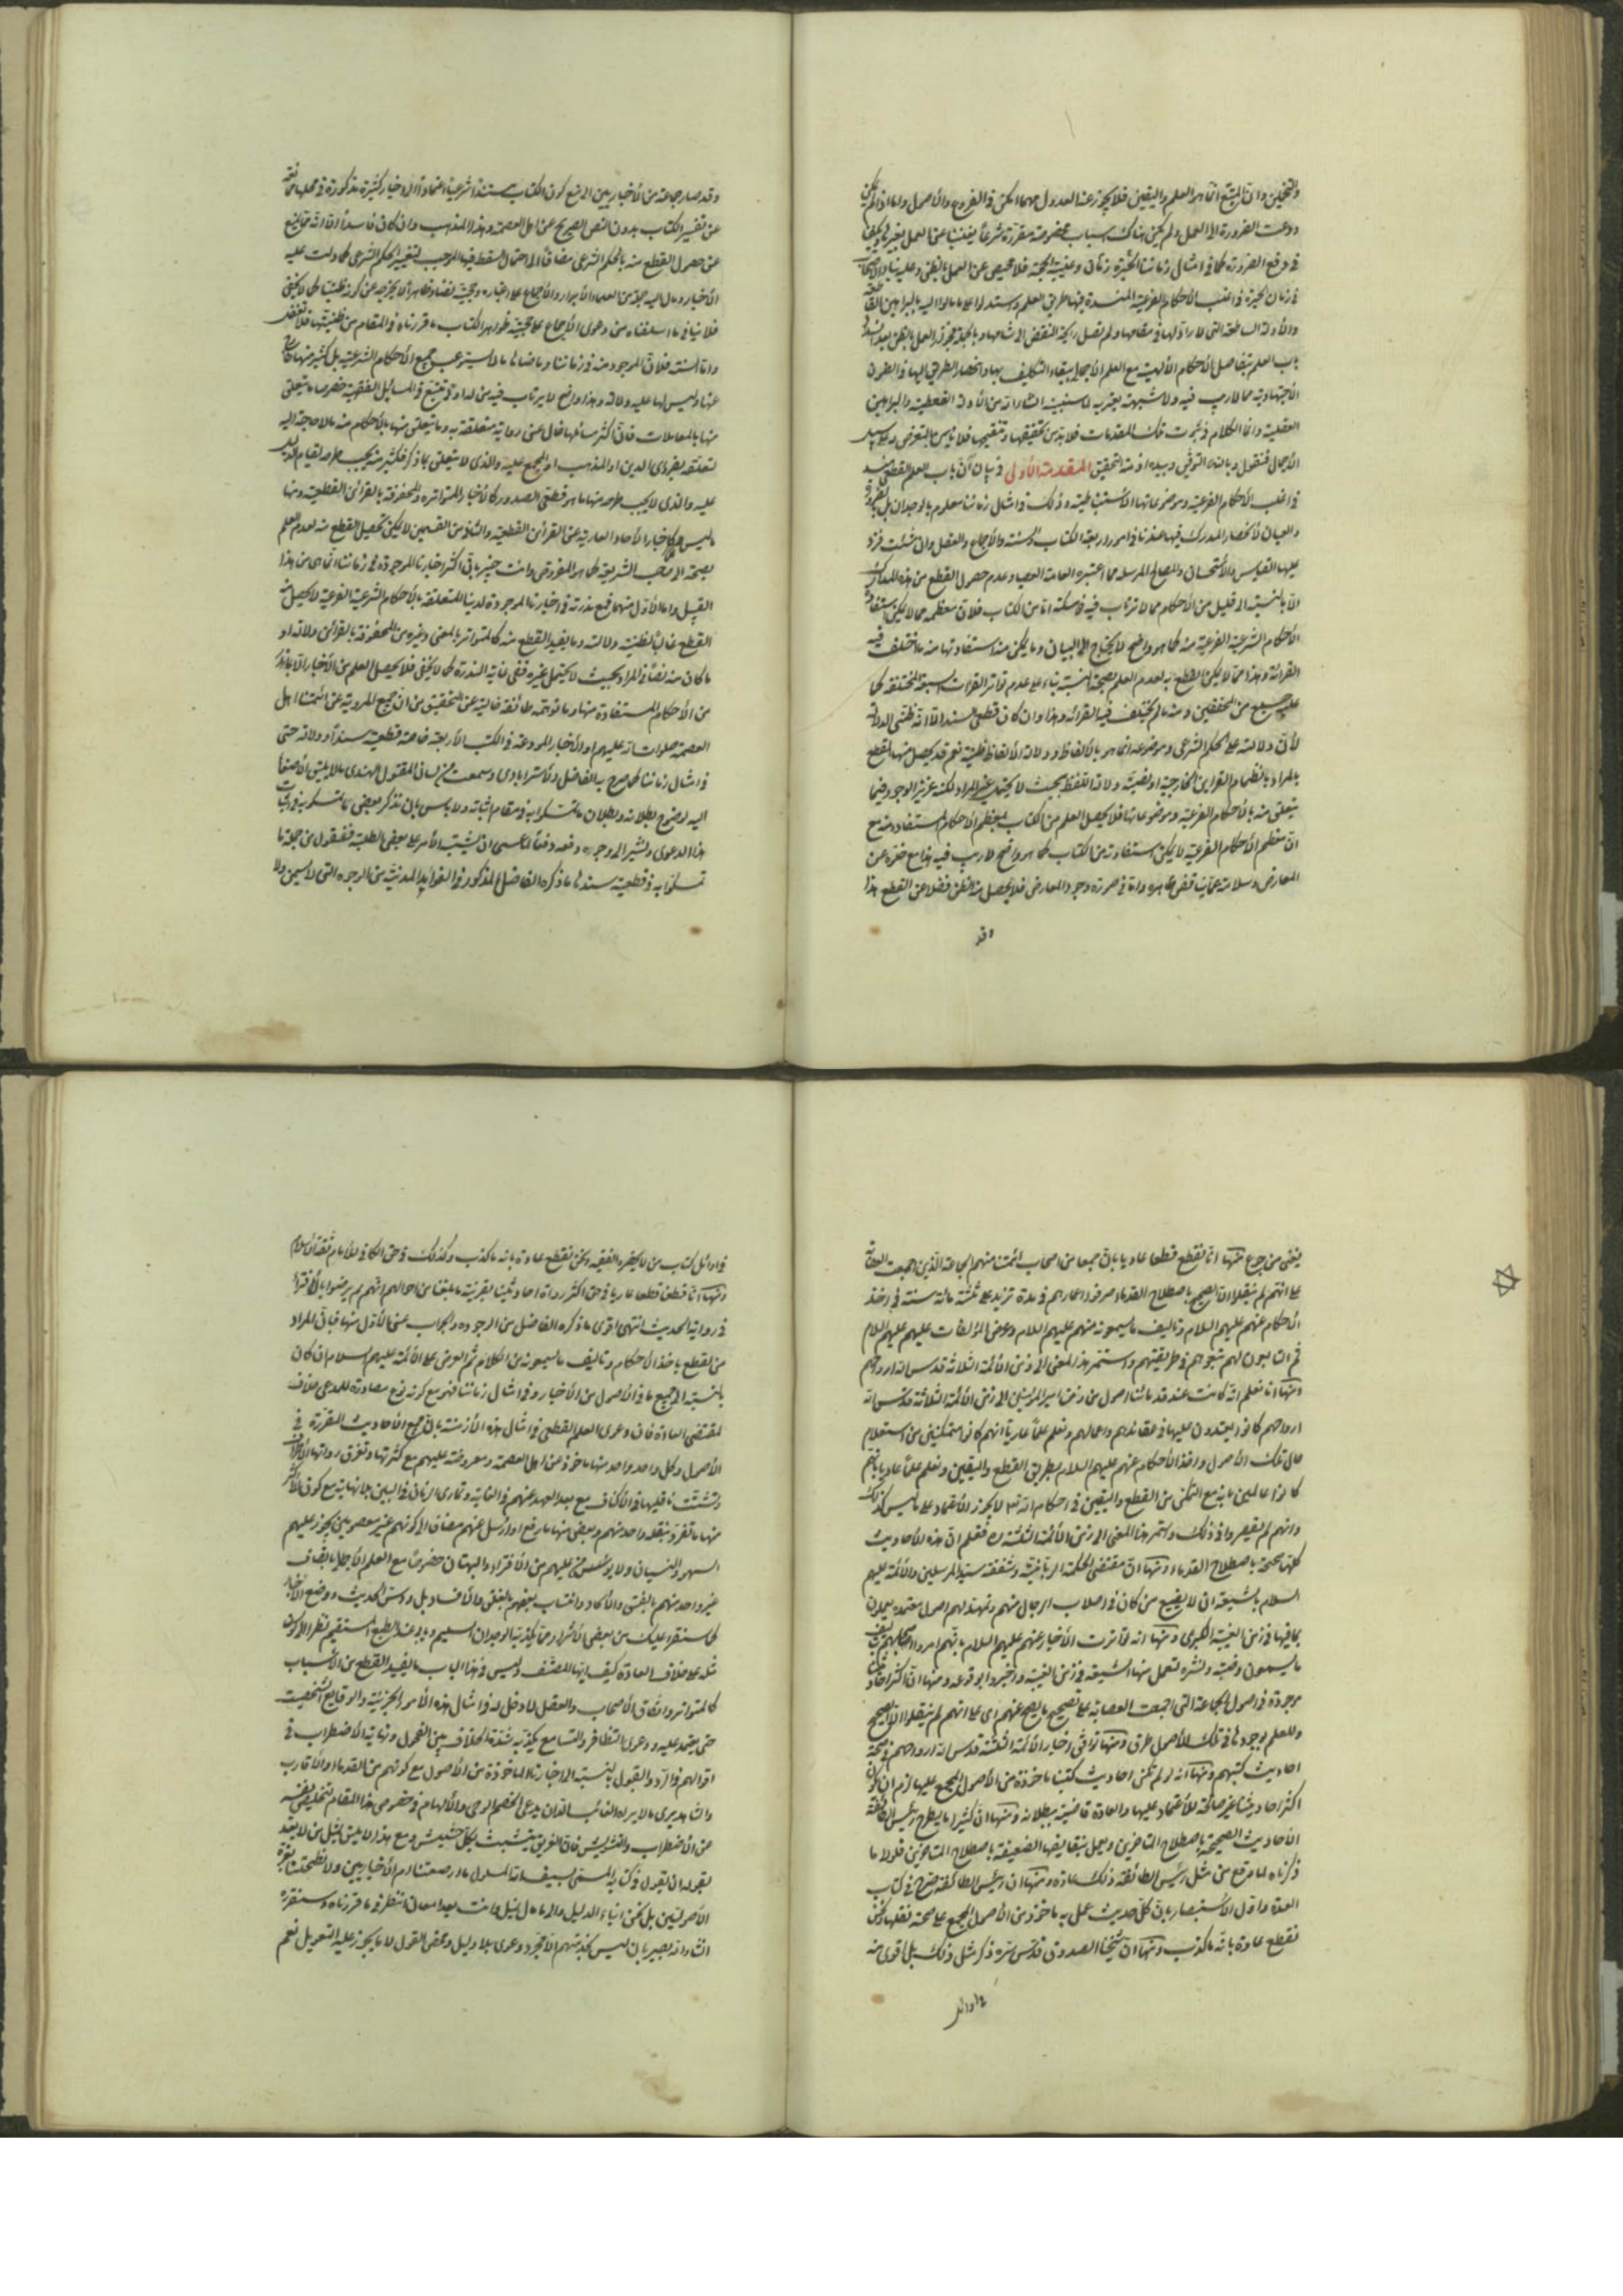 والتخمين وان المتبع انما هو العلم واليقين فلا يجوز عنه العدول مهما امكن في الفروع والأصول واما اذا لم يمكن
ودعت الضرورة الى العمل ولم يكن هناك اسباب مخصوصة مقررة شرعاً يغنينا عن العمل بغيرها
في رفع الضرورة كما في امثال زماننا الحيرة زمان وغيبة الحجة فلا محيص عن العمل بالظن وعليه بناء الاصحاب
في زمان الحيرة في اغلب الأحكام الفرعية المنسدة فيها طريق العلم واستدلوا على ما مالوا اليه بالبراهين القاطعة
والأدلة الساطعة التي لا رادّ لها في مقامها ولم تصل رايحة النقض الى شامها وبالجملة فجواز العمل بالظن بعد انسداد
باب العلم بتفاصيل الأحكام الألهية مع العلم الأجمالي ببقاء التكليف بها وانحصار الطريق اليها في الظنون
الأجتهادية مما لا ريب فيه ولا شبهة يعتريه لما سنبينه انشاء الله من الأدلة القطعية والبراهين
العقلية وانما الكلام في ثبوت تلك المقدمات فلا بد من تحقيقها وتنقيحها فلا بأس بالتعرض على سبيل
الأجمال فنقول وبالله التوفيق وبيده ازمة التحقيق المقدمة الأولى في بيان ان باب العلم القطعي منسد
في اغلب الأحكام الفرعية وموضوعاتها الأستنباطية وذلك في امثال زماننا معلوم بالوجدان بل بالضرورة
والعيان لأنحصار المدرك فيها عندنا في امور اربعة الكتاب والسنة والأجماع والعقل وان شئت فزد
عليها القياس والأستحسان والمصالح المرسلة مما اعتبره العامة العمياء وعدم حصول القطع من هذه المدارك
الا بالنسبة الى قليل من الأحكام مما لا يرتاب فيه ذو مسكة اما من الكتاب فلأن معظمه مما لا يمكن استفادة
الأحكام الشرعية الفرعية منه كما هو واضح لا يحتاج الى البيان وما يمكن منه استفادتها منه ما اختلف فيه
القرائة وهذا مما لا يمكن القطع به لعدم العلم بصحة النسبة بناء على عدم تواتر القراءات السبعة المختلفة كما
عليه جمع من المحققين ومنه ما لم يختلف فيه القرائة وهذا وان كان قطعي السند الا انه ظني الدلالة
لأن دلالته على الحكم الشرعي وموضوعه انما هو بالألفاظ ودلالة الألفاظ ظنية نعم قد يحصل منها القطع
بالمراد بانضمام القراين الخارجية او نصية دلالة اللفظ بحيث لا يحتمل غير المراد لكنه عزيز الوجود فيما
يتعلق منه بالأحكام الفرعية وموضوعاتها فلا يحصل العلم من الكتاب بمعظم الأحكام المستفادة منه مع
ان معظم الأحكام الفرعية لا يمكن استفادته من الكتاب كما هو واضح لا ريب فيه هذا مع خلوه عن
المعارض وسلامته عما ينافى ظاهره واما في صورة وجود المعارض فلا يحصل منه الظن فضلا عن القطع هذا
وقد
وقد صار جماعة من الأخباريين الى منع كون الكتاب مستنداً شرعياً اعتماداً الى اخبار كثيرة مذكورة في محلها مانعة
عن تفسير الكتاب بدون النص الصحيح عن اهل العصمة وهذا المذهب وان كان فاسداً الا انه مما يمنع
عن حصول القطع منه بالحكم الشرعي مضافاً الى احتمال السقط فيها الموجب لتغيير الحكم الشرعي كما دلت عليه
الأخبار ومال اليه جملة من العلماء الأبرار والأجماع على اعتباره وحجيته نصا وظاهراً لا يخرجه عن كونه ظنيا كما لا يخفى
فلا ينافي ما اسلفناه من دعوى الأجماع على حجية ظواهر الكتاب ما قررناه في المقام من ظنيتها فلا تغفل
واما السنة فلأن الموجود منه في زماننا وما ضاهاه ما لا يستوعب جميع الأحكام الشرعية بل كثير منها خال
عنها وليس لها عليه دلالة وهذا واضح لا يرتاب فيه من له ادنى تتبع في المسايل الفقهية خصوصا ما يتعلق
منها بالمعاملات فان اكثر مسائلها خال عن رواية متعلقة به وما يتعلق منها بالأحكام منه ما لا حاجة اليه
لتعلقه بضرورى الدين او المذهب او المجمع عليه والذي لا يتعلق بما ذكر فكثير منه يجب طرحه لقيام الدليل
عليه والذي لا يجب طرحه منها ما هو قطعي الصدور كالأخبار المتواترة والمحفوفة بالقرائن القطعية ومنها
ما ليس كذلك كأخبار الأحاد العارية عن القرائن القطعية والثاني من القسمين لا يمكن تحصيل القطع منه لعدم العلم
بصحته الى صاحب الشريعة كما هو المفروض وانت خبير بان اكثر اخبارنا الموجودة في زماننا انما هى من هذا
القبيل واما الأول منهما فمع ندرته في اخبارنا الموجودة لدينا المتعلقة بالأحكام الشرعية الفرعية لا يحصل منه
القطع غالبا لظنية دلالته وما يفيد القطع منه كالمتواتر بالمعنى وغيره من المحفوفة بالقرائن دلالة او
ما كان منه نصاً في المراد بحيث لا يحتمل غيره ففي غاية الندرة كما لا يخفى فلا يحصل العلم من الأخبار الا بما ندر
من الأحكام المستفادة منها وما توهمه طائفة خالية عن التحقيق من ان جميع المروية عن ائمتنا اهل
العصمة صلوات الله عليهم او الأخبار المودعة في الكتب الأربعة خاصة قطعية سنداً ودلالة حتى
في امثال زماننا كما صرح به الفاضل الأسترابادي وسمعت من لسان المقتول الهندي ما لا يليق الأصغاء
اليه لوضوح بطلانه وبطلان ما تمسكوا به في مقام اثباته ولا بأس بان نذكر بعض ما تمسكوا به في اثبات
هذا الدعوى ونشير الى وجوه دفعه دفعاً لما عسى ان يشتبه الأمر على بعض الطلبة فنقول من جملة ما
تمسكوا به في قطعية سندها ما ذكره الفاضل المذكور في الفوايد المدنية من الوجوه التي لا يسمن ولا
يغنى من جوع منها انا نقطع قطعا عاديا بان جمعا من اصحاب ائمتنا منهم الجماعة الذين اجمعت العصابة
على انهم لم ينقلوا الا الصحيح باصطلاح القدماء صرفوا اعمارهم في مدة تزيد على ثلثة مائة سنة في اخذ
الأحكام عنهم عليهم السلام وتأليف ما يسمعونه منهم عليهم السلام وعرض المؤلفات عليهم عليهم السلام
ثم التابعون لهم تبعوهم في طريقتهم واستمر هذا المعنى الى زمن الائمة الثلاثة قدس الله ارواحهم
ومنها انا نعلم انه كانت عند قدمائنا اصول من زمن امير المؤمنين الى زمن الائمة الثلاثة قدس الله
ارواحهم كانوا يعتمدون عليها في عقائدهم واعمالهم ونعلم علماً عادياً انهم كانوا متمكنين من استعلام
حال تلك الأصول واخذ الأحكام عنهم عليهم السلام بطريق القطع واليقين ونعلم علماً عاديا بانهم
كانوا عالمين بانه مع التمكن من القطع واليقين في احكام الله تعالى لا يجوز الأعتماد على ما ليس كذلك
وانهم لم يقصروا في ذلك واستمر هذا المعنى الى زمن الائمة الثلثة فعلم ان هذه الأحاديث
كلها صحيحة باصطلاح القدماء ومنها ان مقتضى الحكمة الربانية وشفقة سيد المرسلين والأئمة عليهم
السلام بالشيعة ان لا يضيع من كان في اصلاب الرجال منهم وتمهد لهم اصول معتمدة يعملون
بما فيها في زمن الغيبة الكبرى ومنها انه تواترت الأخبار عنهم عليهم السلام بانهم امروا اصحابهم بتأليف
ما يسمعون وضبطه ونشره لتعمل منها الشيعة في زمن الغيبة واخبروا بوقوعه ومنها ان اكثر احاديثنا
موجودة في اصول الجماعة التي اجمعت العصابة على تصحيح ما يصح عنهم اى على انهم لم ينقلوا الا الصحيح
وللعلم بوجودها في تلك الأصول طرق ومنها توافق اخبار الأئمة الثلثة قدس الله ارواحهم في صحة
احاديث كتبهم ومنها انه لو لم تكن احاديث كتبنا ماخوذة من الأصول المجمع عليها لزم ان يكون
اكثر احاديثنا غير صالحة للأعتماد عليها والعادة قاضية ببطلانه ومنها ان كثيرا ما يطرح رئيس الطائفة
الأحاديث الصحيحة باصطلاح المتأخرين ويعمل بنقايضها الضعيفة باصطلاح المتأخرين فلولا ما
ذكرناه لما وقع من مثل رئيس الطائفة ذلك عادة ومنها ان رئيس الطائفة صرح في كتاب
العدة واول الاستبصار بان كل حديث عمل به ماخوذ من الأصول المجمع على صحة نقلها ونحن
نقطع عادة بانه ما كذب ومنها ان شيخنا الصدوق قدس سره ذكر مثل ذلك بل اقوى منه
في اوائل
في اوائل كتاب من لا يحضره الفقيه ونحن نقطع عادة بانه ما كذب وكذلك في حق الكافي للأمام ثقة الأسلام
ومنها انا قطعنا قطعا عاديا في حق اكثر رواة احاديثنا بقرينة ما بلغنا من احوالهم انهم لم يرضوا بالأفتراء
في رواية الحديث انتهى اقوى ما ذكره الفاضل من الوجوه والجواب عن الأول منها فبأن المراد
من القطع باخذ الأحكام وتأليف ما يسمعونه من الكلام ثم العرض على الأئمة عليهم السلام ان كان
بالنسبة الى جميع ما في الأصول من الأخبار وفي امثال زماننا فهو مع كونه نوع مصادرة للمدعى خلاف
لمقتضى العادة فان دعوى العلم القطعي في امثال هذه الأزمنة بان جميع الأحاديث المقررة في
الأصول وكل واحد واحد منها ماخوذ من اهل العصمة ومعروضة عليهم مع كثرتها وتفرق رواتها في الأطراف
وتشتت ناقليها في الأكناف مع بعد العهد عنهم في الغاية وتمادى الزمان في البين بلا نهاية مع كون الأكثر
منها ما تفرد بنقله واحد منهم وبعض منها ما رفع او ارسل عنهم مضافا الى كونهم غير معصومين يجوز عليهم
السهو والنسيان ولا يؤمن عليهم من الأفتراء والبهتان خصوصا مع العلم الأجمالي باتصاف
غير واحد منهم بالفسق والألحاد وانتساب بعضهم بالغلو والأفساد بل ودس الحديث ووضع الأخبار
كما سنقرء عليك من بعض الأشرار مما يكذبه الوجدان السليم ويأبى عنه الطبع المستقيم نظرا الى كون
مثله على خلاف العادة كيف انها للمصنف وليس في هذا الباب ما يفيد القطع من الأسباب
كالمتواتر واتفاق الأصحاب والعقل لا دخل له في امثال هذه الأمور الجزئية والوقايع الشخصية
حتى يعتمد عليه ودعوى التظافر والتسامع يكذبه شدة الخلاف بين الفحول ونهاية الأضطراب في
اقوالهم في الرد والقبول بالنسبة الى اخبارنا الماخوذة من الأصول مع كونهم من القدماء والأقارب
والشاهد يرى ما لا يراه الغائب الا ان يدعى الخصم الوحى والألهام في خصوص هذا المقام لتخليص نفسه
من الأضطراب والتشويش فان الغريق يتشبث بكل حشيش ومع هذا لا يليق بمثل من لا يعتد
بقوله ان يقول في كتابه المسمى بسيف الله المسلول
الأصوليين بل نحن ابناء الدليل والى ما مال نميل وانت بعد امعان النظر في ما قررناه وسنقرره
انشاء الله بصير بان ليس عندهم الا مجرد دعوى بلا دليل ومحض القول لا ما يجوز عليه التعويل نعم